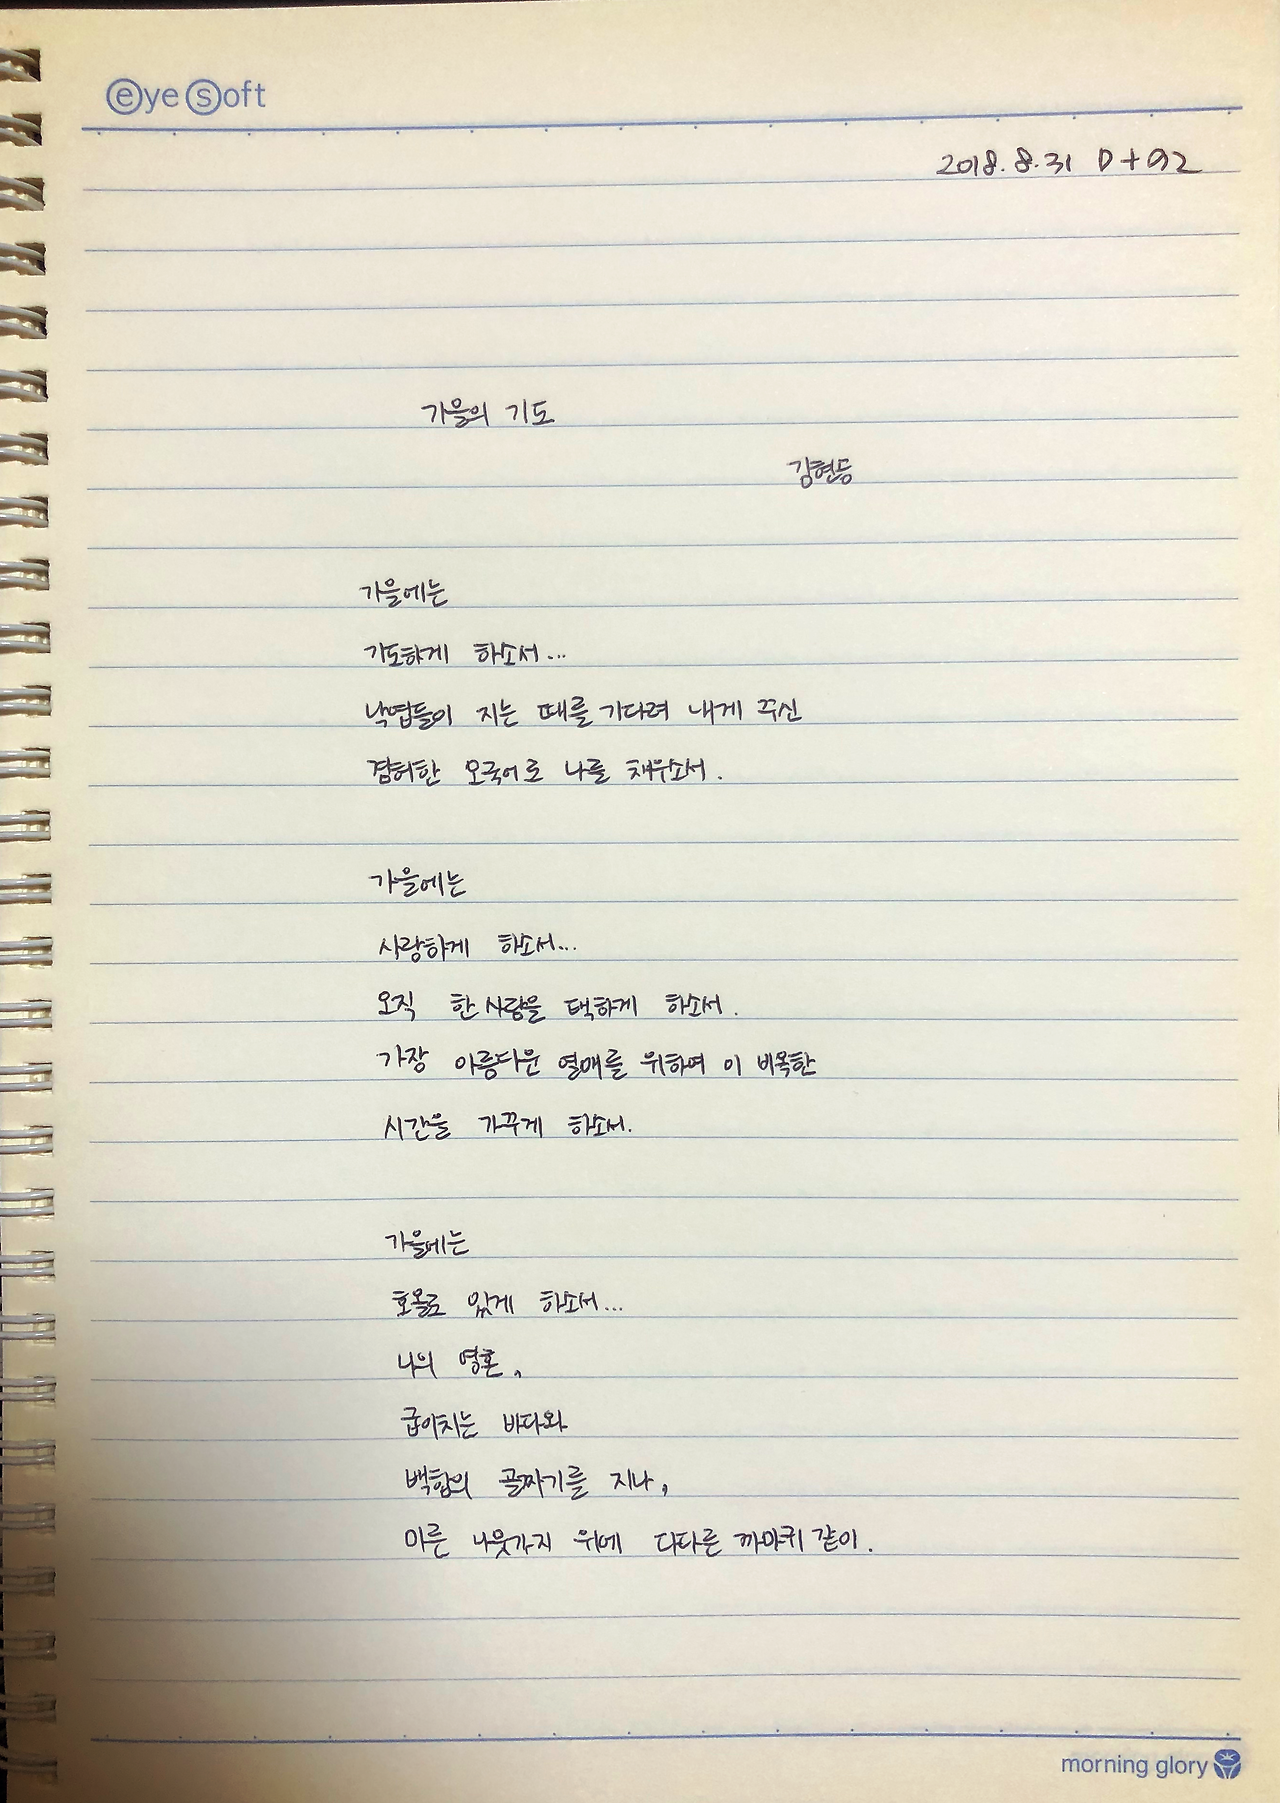 eyesoft
2018. 8. 31 D+92
가을의 기도
김현승
가을에는
기도하게 하소서...
낙엽들이 지는 때를 기다려 내게 주신
겸허한 모국어로 나를 채우소서.
가을에는
사랑하게 하소서...
오직 한 사람을 택하게 하소서.
가장 아름다운 열매를 위하여 이 비옥한
시간을 가꾸게 하소서.
가을에는
호올로 있게 하소서...
나의 영혼,
굽이치는 바다와
백합의 골짜기를 지나,
마른 나뭇가지 위에 다다른 까마귀 같이.
morning glory